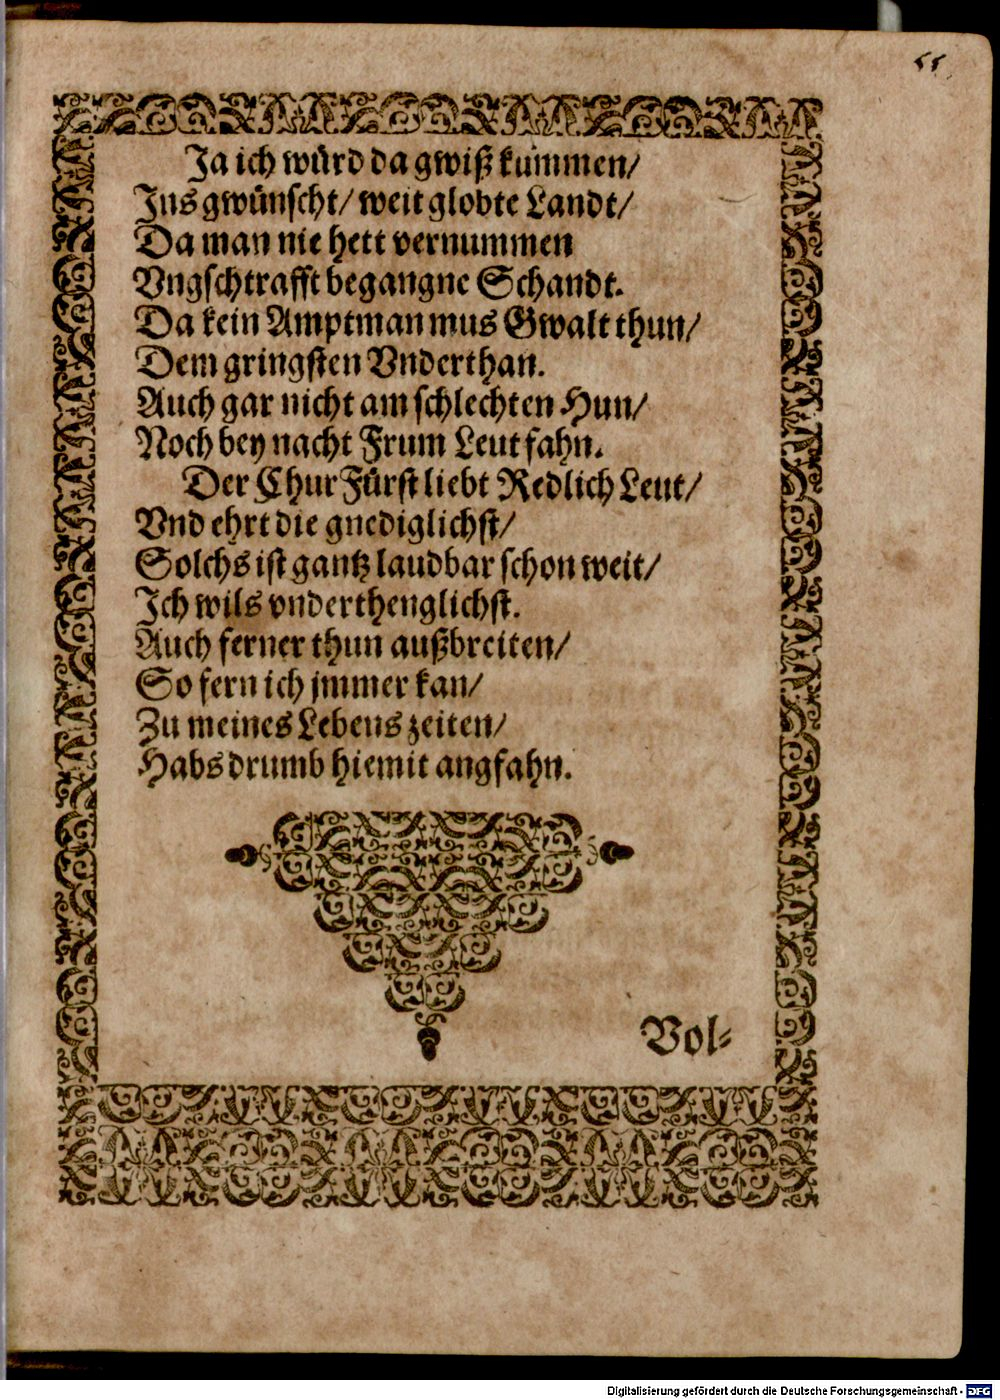 55
Ja ich würd da gwiß kummen/
Ins gwünscht/ weit globte Landt/
Da man nie hett vernummen
Vngschtrafft begangne Schandt.
Da kein Amptman mus Gwalt thun/
Dem gringsten Vnderthan.
Auch gar nicht am schlechten Hun/
Noch bey nacht Frum Leut fahn.
Der ChurFürst liebt Redlich Leut/
Vnd ehrt die gnediglichst/
Solchs ist gantz laudbar schon weit/
Ich wils vnderthenglichst.
Auch ferner thun außbreiten/
So fern ich jmmer kan/
Zu meines Lebens zeiten/
Habs drumb hiemit angfahn.
Vol-
Digitalisierung gefördert durch die Deutsche Forschungsgemeinschaft - DFG